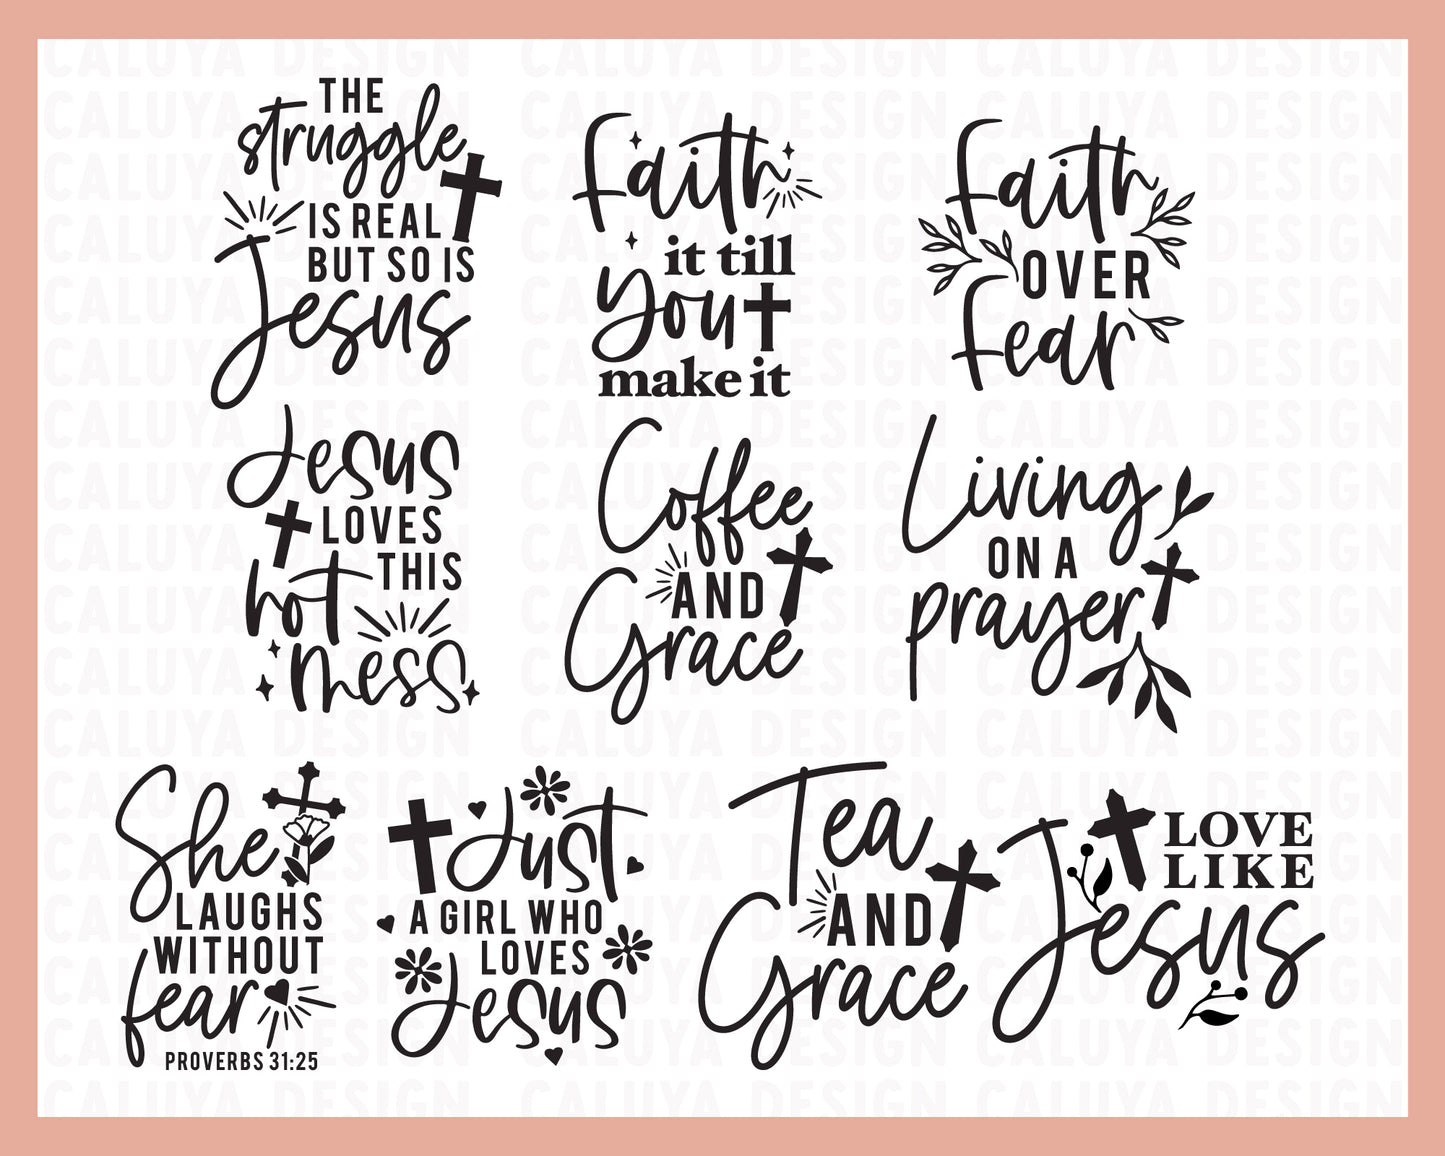 THE
struggle
IS REAL
BUT SO IS
Jesus
Faith
it till
you
make it
Faith
OVER
fear
Jesus
LOVES
THIS
hot
mess
Coffee
AND
Grace
Living
ON A
prayer
She
LAUGHS
WITHOUT
fear
PROVERBS 31:25
Just
A GIRL WHO
LOVES
Jesus
Tea
AND
Grace
LOVE
LIKE
Jesus
CALUYA DESIGN